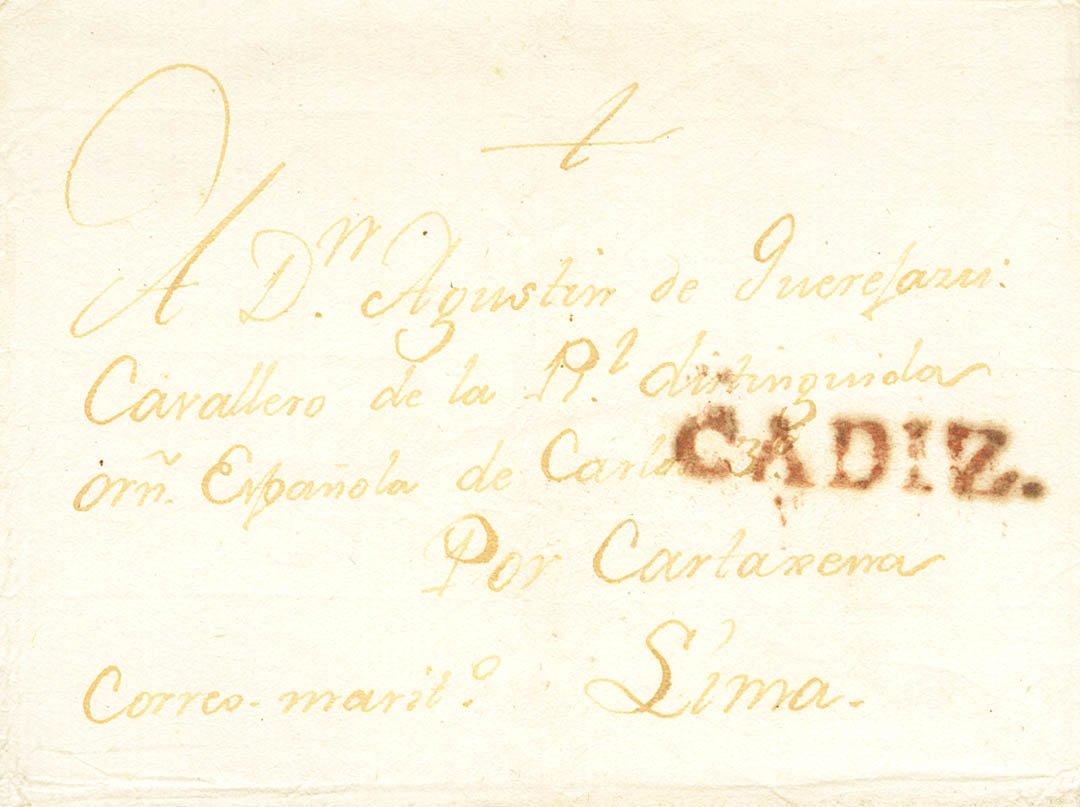 A Dn. Agustin de Querejazu:
Cavallero de la Rl. distinguida
orñ. Española de Carlos 3º
CADIZ.
Por Cartaxena
Correo-marit.º Lima.